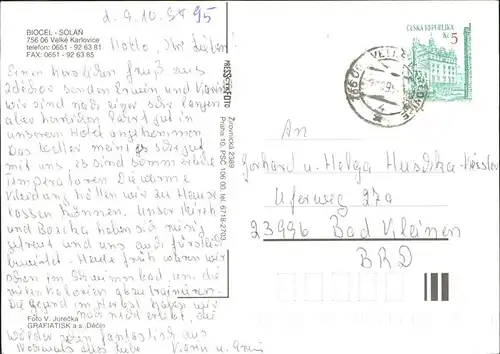 d. 9.10.
95
BIOCEL - SOLÁŇ
756 06 Velké Karlovice
telefon: 0651 - 92 63 81
FAX: 0651 - 92 63 85
Hallo, Ihr Lieben!
Einen herzlichen Gruß aus
senden Erwin und Karin
wir sind nach einer sehr langen
aber herrlichen Fahrt gut in
unserem Hotel angekommen
Das Wetter meint es sehr gut
mit uns es sind sommerliche
Temperaturen Die warme
Kleidung hätten wir zu Hause
lassen können. Unser
und haben sich riesig
gefreut und uns auch fürstlich
bewirtet. Heute früh waren wir
schon im Schwimmbad um die
abzutrainieren.
Die Gegend im Herbst haben wir
noch nie erlebt, die
Foto V. Jurečka
GRAFIATISK a.s. Děčín
Wälder sehen fantastisch aus
Nochmals alles Liebe Karin u. Erwin
PRESSFOTO
Žirovnická 2389
Praha 10, PSČ 106 00, tel. 6718-2703
ČESKÁ REPUBLIKA
Kč 5
756 06 VELKÉ KARLOVICE
An
Gerhard u. Helga
Uferweg 27a
23996 Bad Kleinen
BRD